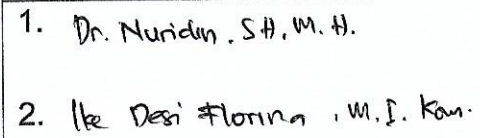 1. Dr. Nuridin, S.H, M.H.
2. Ike Desi Florina, M.I. Kom.